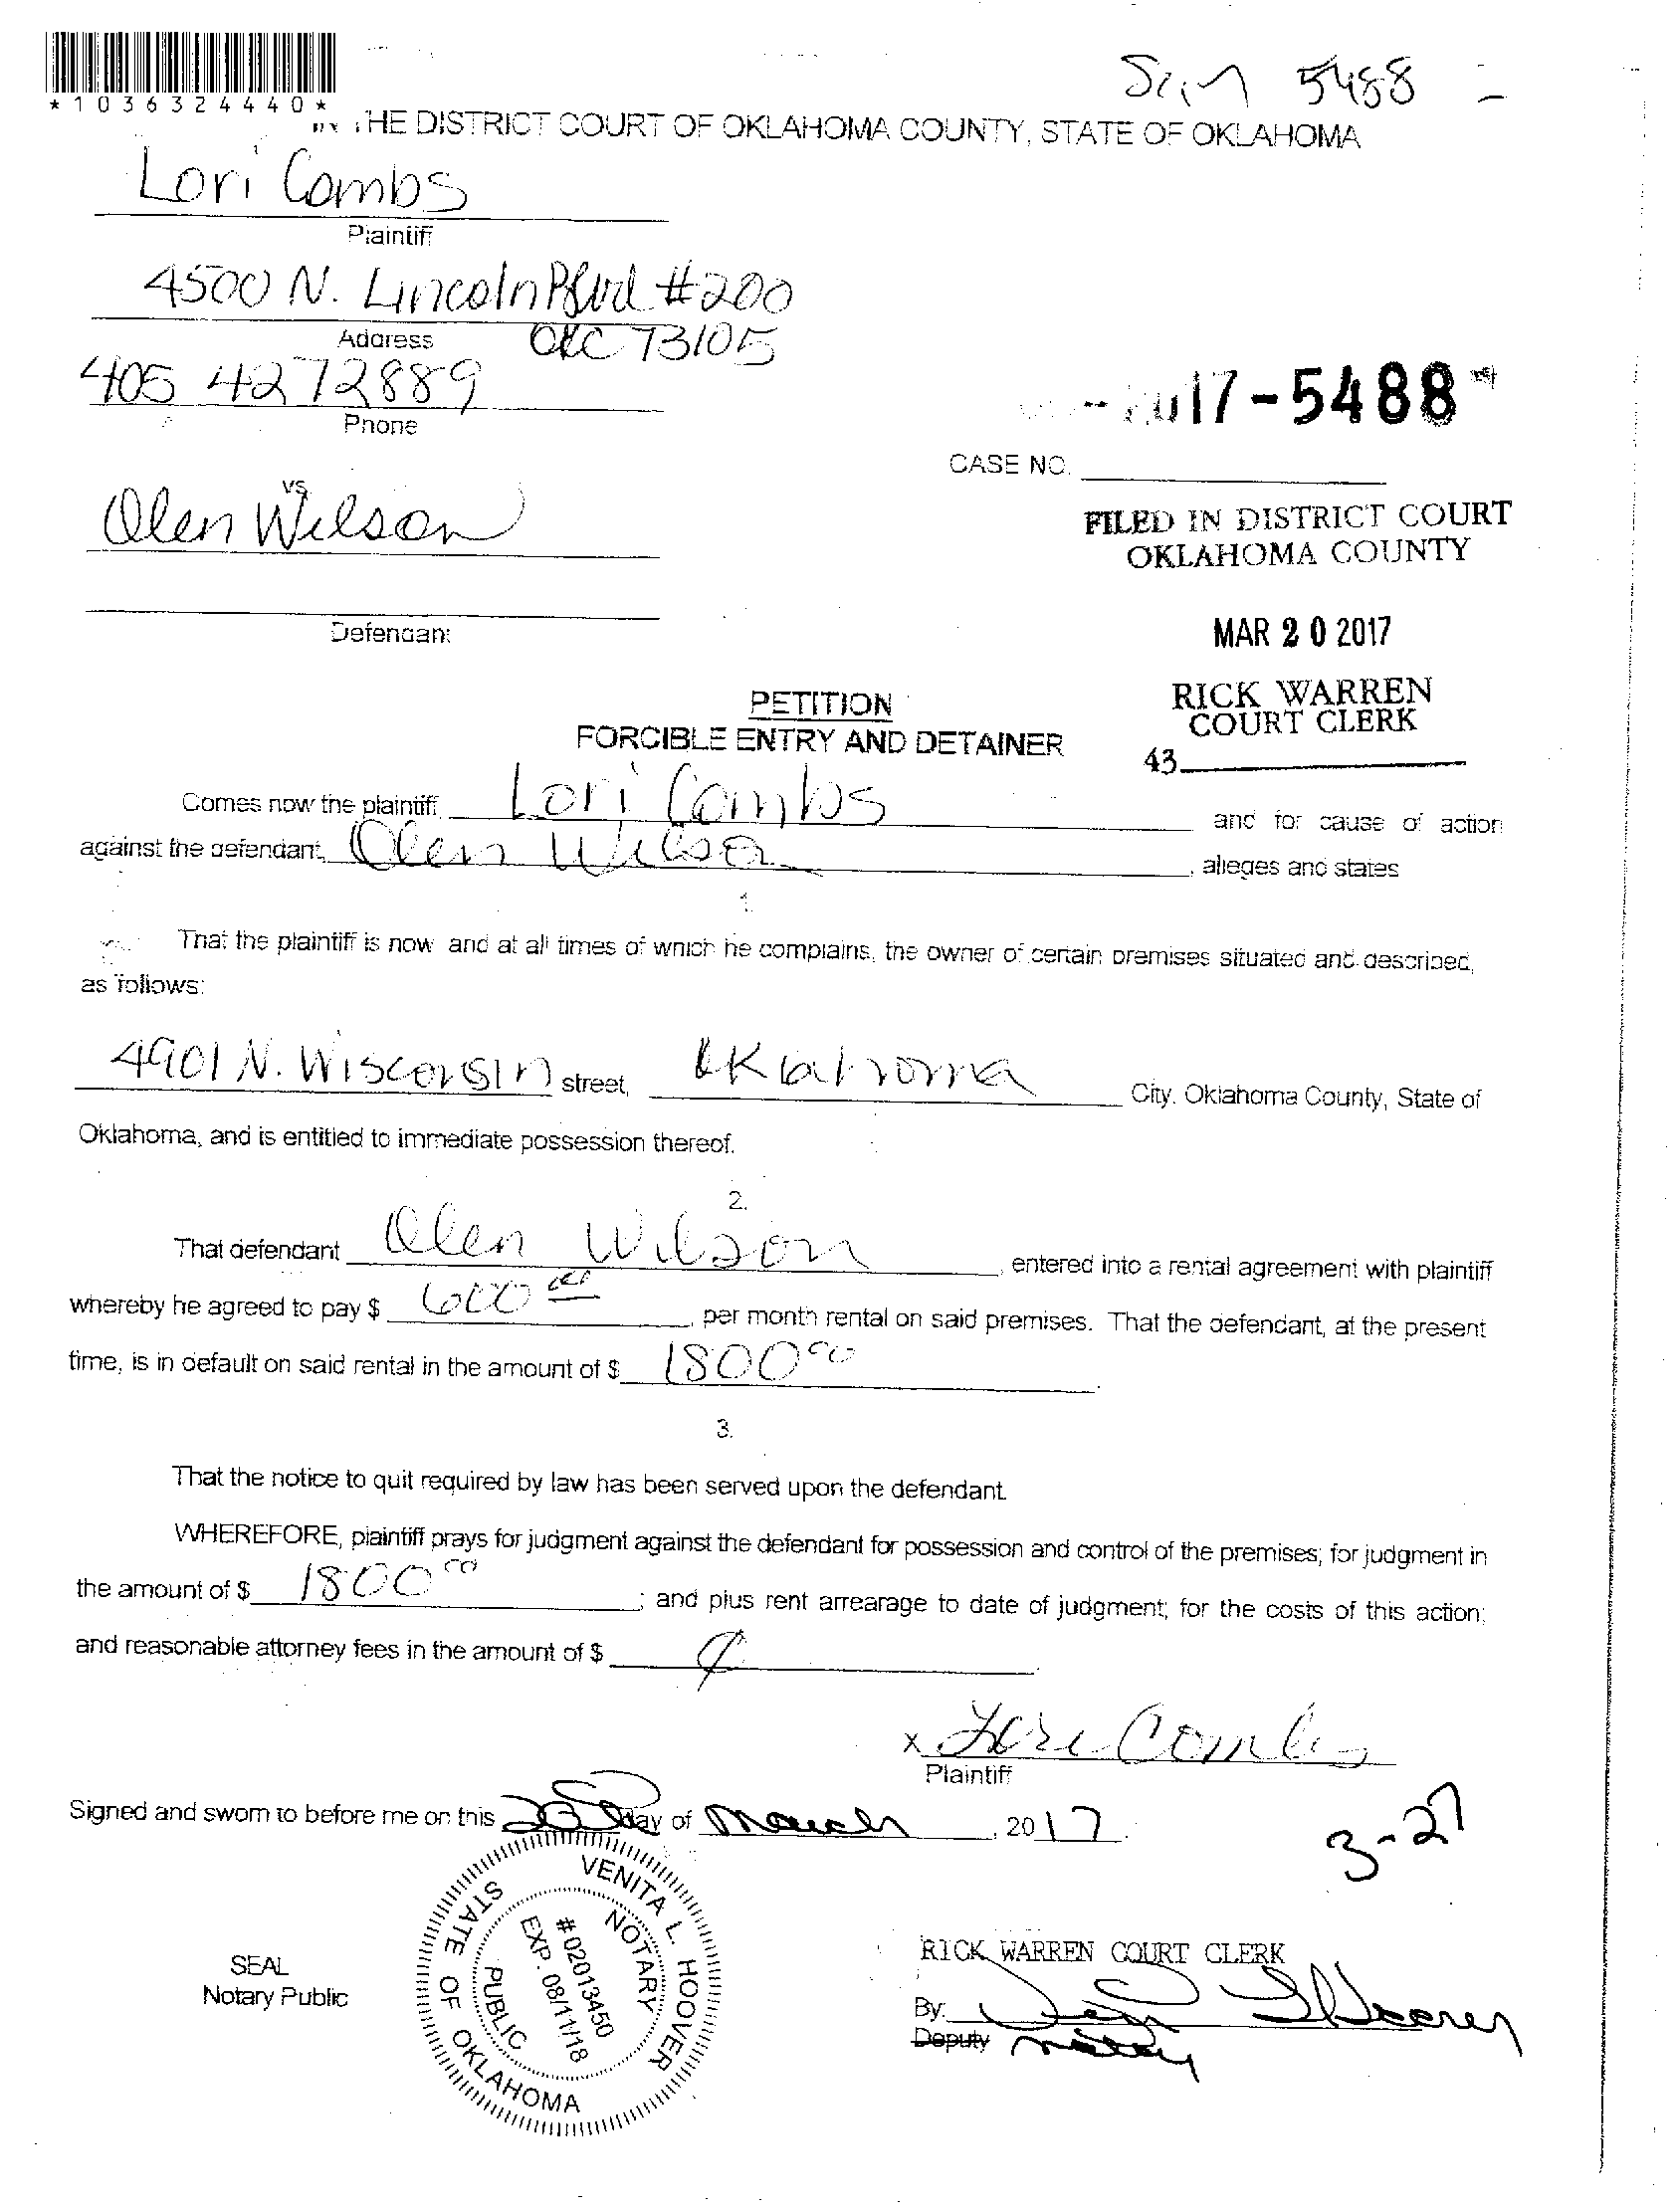 *1036324440*
5488
THE DISTRICT COURT OF OKLAHOMA COUNTY, STATE OF OKLAHOMA
Lori Combs
Plaintiff
4500 N. Lincoln Blvd #200
Address OKC 73105
405 4272889
Phone
2017-5488
CASE NO.
vs
Olen Wilson
FILED IN DISTRICT COURT
OKLAHOMA COUNTY
Defendant
MAR 20 2017
PETITION
FORCIBLE ENTRY AND DETAINER
RICK WARREN
COURT CLERK
43
Comes now the plaintiff, Lori Combs and for cause of action
against the defendant, Olen Wilson, alleges and states
1.
That the plaintiff is now and at all times of which he complains, the owner of certain premises situated and described,
as follows:
4901 N. Wisconsin street, Oklahoma City, Oklahoma County, State of
Oklahoma, and is entitled to immediate possession thereof.
2.
That defendant Olen Wilson, entered into a rental agreement with plaintiff
whereby he agreed to pay $ 600 00, per month rental on said premises. That the defendant, at the present
time, is in default on said rental in the amount of $ 1800 00.
3.
That the notice to quit required by law has been served upon the defendant.
WHEREFORE, plaintiff prays for judgment against the defendant for possession and control of the premises; for judgment in
the amount of $ 1800 00; and plus rent arrearage to date of judgment; for the costs of this action;
and reasonable attorney fees in the amount of $
x Lori Combs
Plaintiff
Signed and sworn to before me on this 20 day of March, 2017.
3-27
VENITA L. HOOVER
STATE OF OKLAHOMA
NOTARY PUBLIC
# 02013450
EXP. 08/11/18
SEAL
Notary Public
RICK WARREN COURT CLERK
By:
Deputy notary